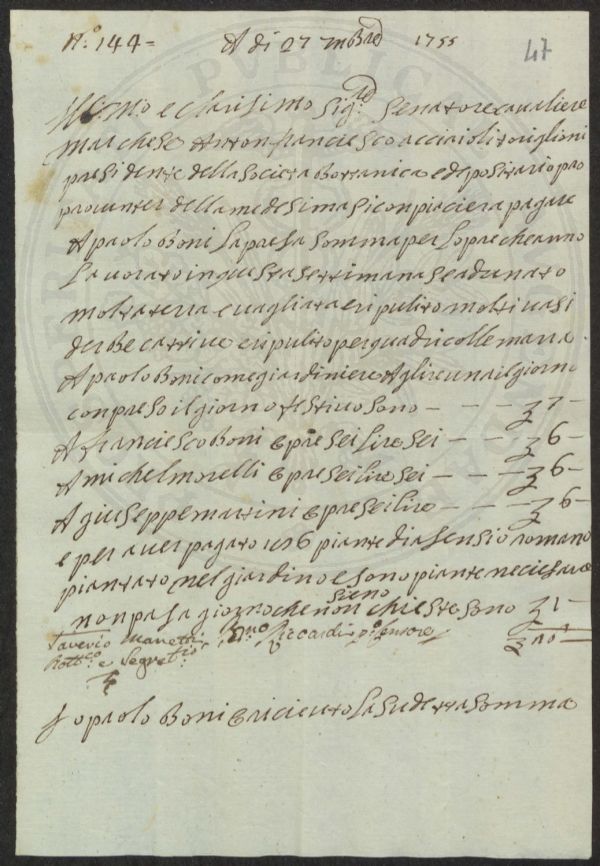 N.º 144 = A di 27 7mbre 1755
47
Illmo e clarisimo Sig.re Senatore cavaliere
marchese Anton franciesco acciaioli toriglioni
presidente della Societa Bottanica e depositario pro
della medesima si conpiaciera pagare
A paolo Boni la presa somma per lopre che anno
la vorato in questa settimana se adunato
molta terra e vagliata e ripulito molti vasi
derbe cattive e ripulito per quadri colle marra
A paolo Boni come giardiniere A glire una il giorno
conpreso il giorno festivo sono — — — 7 —
A franciesco Boni opre sei lire sei — — — 6 —
A michel morelli opre sei lire sei — — — 6 —
A giuseppe martini opre sei lire — — — 6 —
e per aver pagato 106 piante di asensio romano
piantato nel giardino e sono piante neciesarie
non pasa giorno che non sieno chieste sono 1 —
Saverio Manetti Riccardi
Bott.co e Segret.rio
Io paolo Boni o ricieuto la sudetta somma